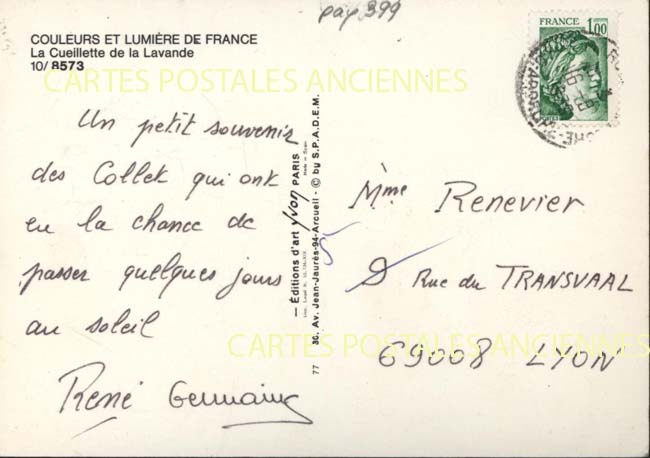 pay 399
COULEURS ET LUMIÈRE DE FRANCE
La Cueillette de la Lavande
10/ 8573
FRANCE
1,00
CARTES POSTALES ANCIENNES
Un petit souvenir
des Collet qui ont
eu la chance de
passer quelques jours
au soleil
René Germaine
— Éditions d'art Yvon PARIS
30, Av. Jean-Jaurès-94-Arcueil - © by S.P.A.D.E.M.
77
Mme Renevier
5
9 Rue du TRANSVAAL
CARTES POSTALES ANCIENNES
69008 LYON